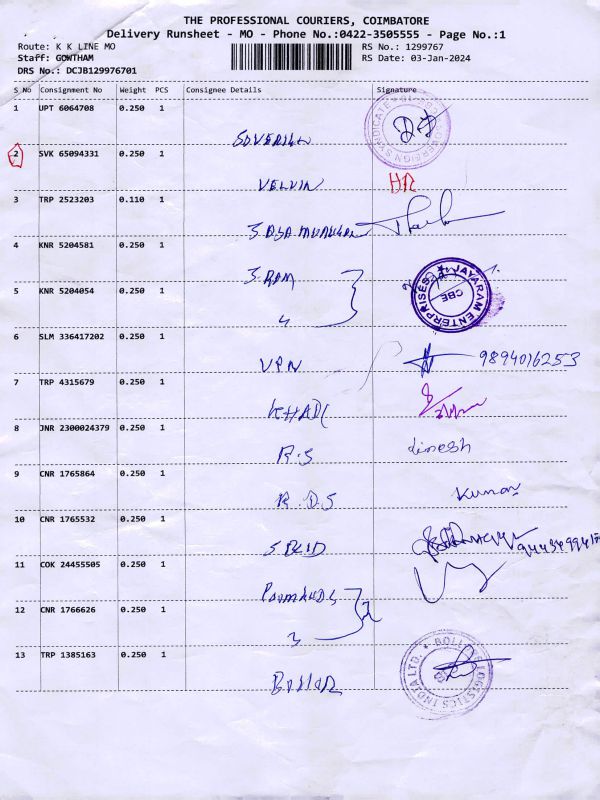 THE PROFESSIONAL COURIERS, COIMBATORE
Delivery Runsheet - MO - Phone No.:0422-3505555 - Page No.:1
Route: K K LINE MO RS No.: 1299767
Staff: GOWTHAM RS Date: 03-Jan-2024
DRS No.: DCJB129976701
S No Consignment No Weight PCS Consignee Details Signature
1 UPT 6064708 0.250 1
2 SVK 65094331 0.250 1
VELVIN
3 TRP 2523203 0.110 1
4 KNR 5204581 0.250 1
S.RAM
5 KNR 5204054 0.250 1
JAYARAM ENTERPRISES
CBE
6 SLM 336417202 0.250 1
VPN 9894016253
7 TRP 4315679 0.250 1
KHADI
8 JNR 2300024379 0.250 1
R.S dinesh
9 CNR 1765864 0.250 1
R.D.S Kumar
10 CNR 1765532 0.250 1
11 COK 24455505 0.250 1
12 CNR 1766626 0.250 1
13 TRP 1385163 0.250 1
LOGISTICS INDIA LTD